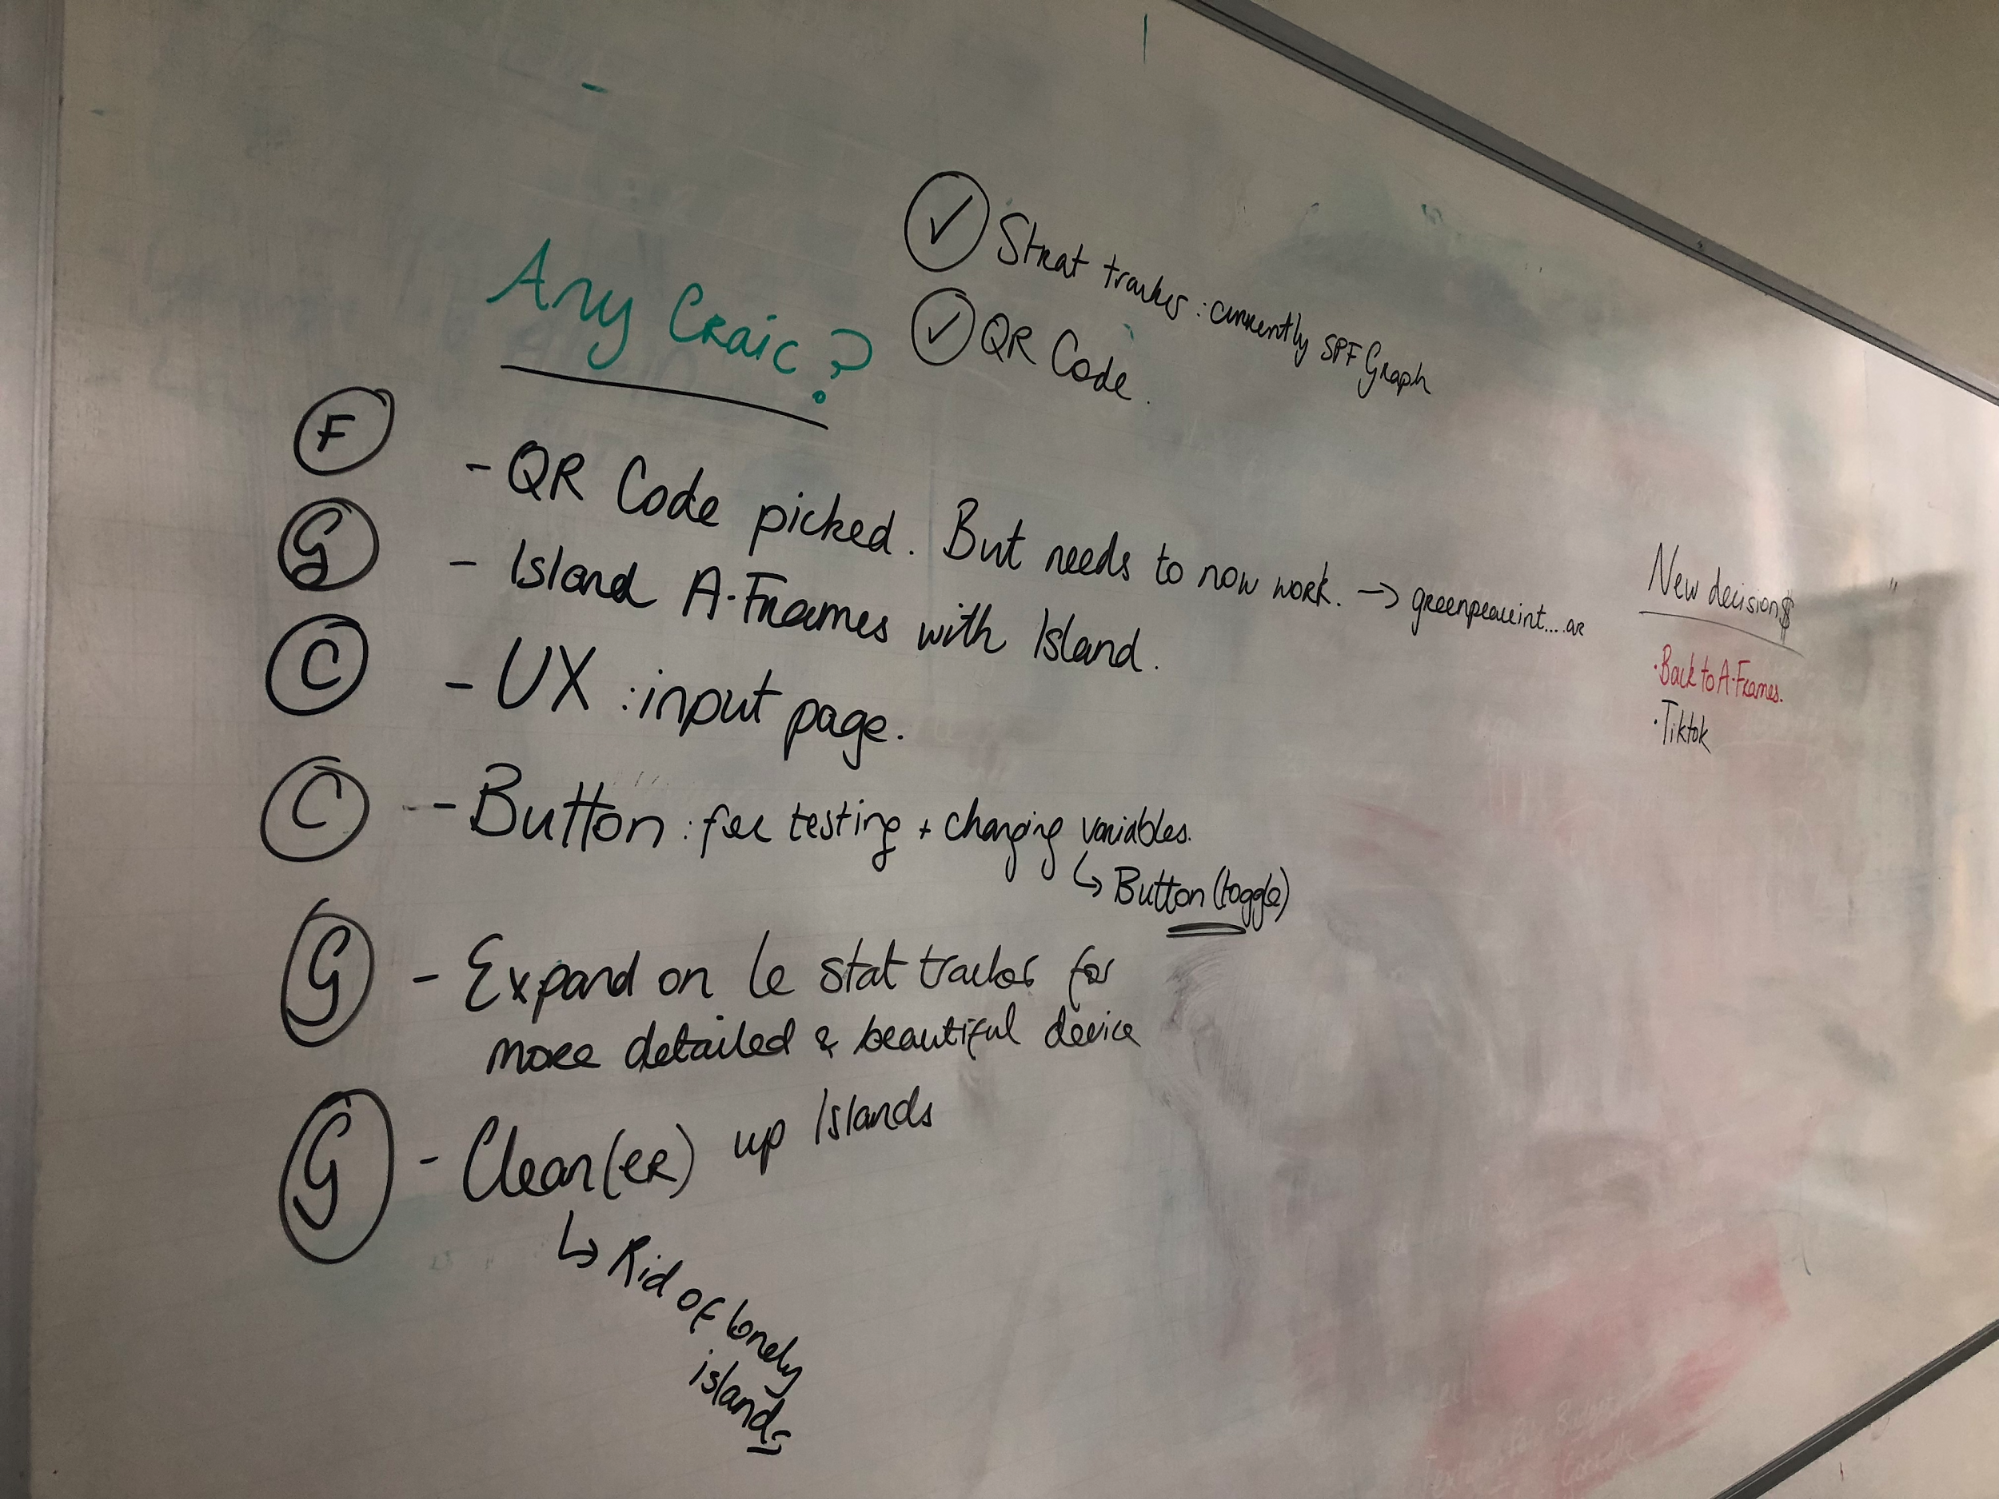 Any Craic?
✓ Strat tracker : currently SPF Graph
✓ QR Code.
F - QR Code picked. But needs to now work. → greenpeaceint.... ar
G - Island A-Frames with Island.
C - UX : input page.
C - Button : for testing + changing variables.
↳ Button (toggle)
G - Expand on le stat tracker for
more detailed & beautiful device
G - Clean(er) up Islands
↳ Rid of lonely
islands
New decision$
· Back to A-Frames.
· Tiktok